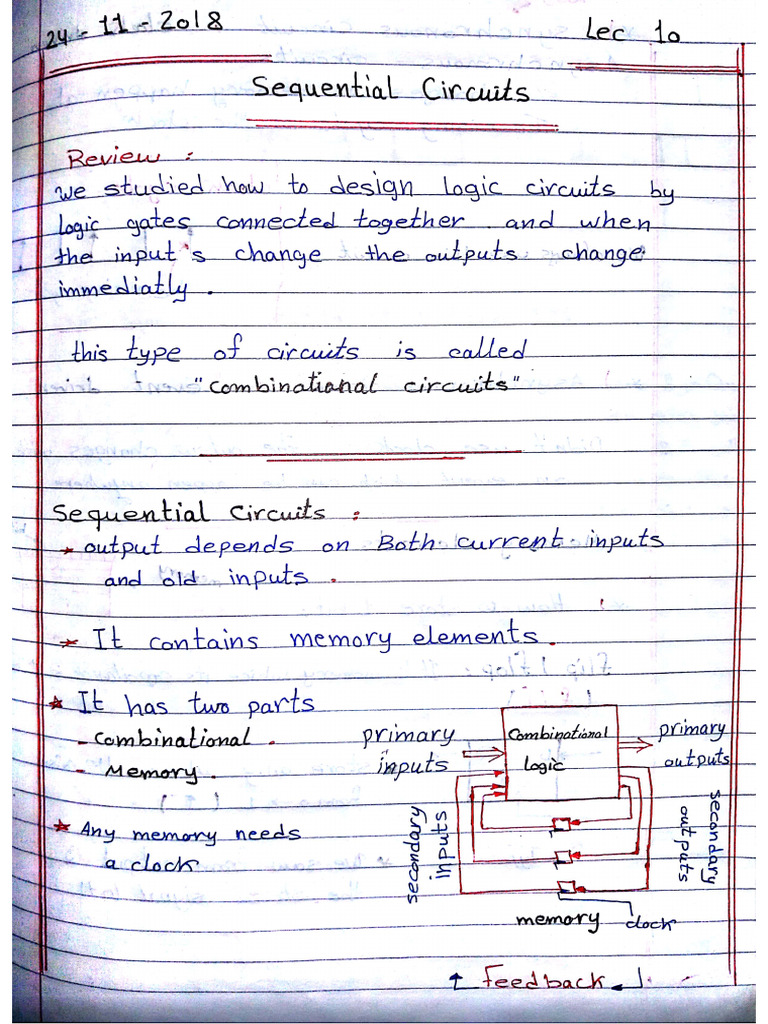 24 - 11 - 2018
Lec 10
Sequential Circuits
Review :
we studied how to design logic circuits by
logic gates connected together . and when
the input's change the outputs change
immediatly .
this type of circuits is called
"combinational circuits"
Sequential Circuits :
* output depends on Both current inputs
and old inputs .
* It contains memory elements .
* It has two parts
- Combinational .
- Memory .
* Any memory needs
a clock
primary
inputs
Combinational
logic
primary
outputs
secondary
inputs
secondary
outputs
memory
clock
↑ Feedback ↲